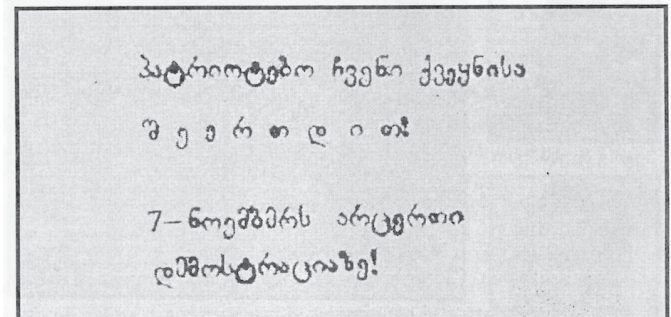 პატრიოტებო ჩვენი ქვეყნისა
შ ე ე რ თ დ ი თ!
7–ნოემბერს არცერთი
დემოსტრაციაზე!